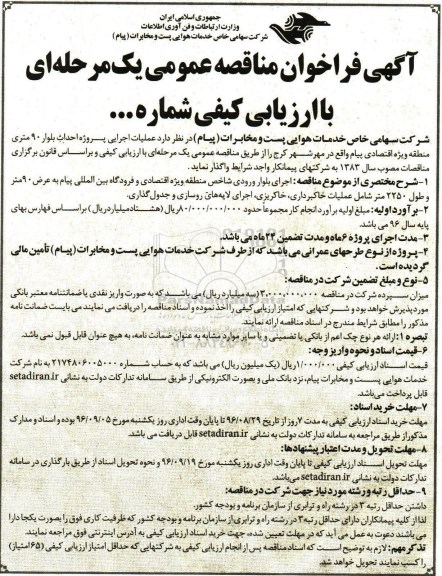 جمهوری اسلامی ایران
وزارت ارتباطات و فن آوری اطلاعات
شرکت سهامی خاص خدمات هوایی پست و مخابرات (پیام)
آگهی فراخوان مناقصه عمومی یک مرحله‌ای
با ارزیابی کیفی شماره ...
شرکت سهامی خاص خدمات هوایی پست و مخابرات (پیام) در نظر دارد عملیات اجرایی پروژه احداث بلوار ۹۰ متری
منطقه ویژه اقتصادی پیام واقع در مهرشهر کرج را از طریق مناقصه عمومی یک مرحله‌ای با ارزیابی کیفی و براساس قانون برگزاری
مناقصات مصوب سال ۱۳۸۳ به شرکتهای پیمانکار واجد شرایط واگذار نماید.
۱-شرح مختصری از موضوع مناقصه: اجرای بلوار ورودی شاخص منطقه ویژه اقتصادی و فرودگاه بین المللی پیام به عرض ۹۰متر
و طول ۲۲۵۰ متر شامل عملیات خاکبرداری، خاکریزی، اجرای لایه‌های روسازی و جدول‌گذاری.
۲-برآورد اولیه: مبلغ اولیه برآورد انجام کار مجموعاً حدود ۸۰/۰۰۰/۰۰۰/۰۰۰ریال (هشتاد میلیارد ریال) براساس فهارس بهای
پایه سال ۹۶ می باشد.
۳-مدت اجرای پروژه ۶ماه و مدت تضمین ۲۴ماه می‌باشد.
۴-پروژه از نوع طرحهای عمرانی می‌باشد که از طرف شرکت خدمات هوایی پست و مخابرات (پیام) تأمین مالی
گردیده است.
۵-نوع و مبلغ تضمین شرکت در مناقصه:
میزان سپرده شرکت در مناقصه ۳/۰۰۰/۰۰۰/۰۰۰(سه میلیارد ریال) می باشد که به صورت واریز نقدی یا ضمانتنامه معتبر بانکی
مورد پذیرش خواهد بود و شرکتهایی که امتیاز ارزیابی کیفی را اخذ نموده و اسناد مناقصه را دریافت می نمایند می بایست ضمانت نامه
مذکور را مطابق شرایط مندرج در اسناد مناقصه ارائه نمایند.
تبصره ۱: ارائه هر نوع چک اعم از بانکی یا تضمینی و یا سایر موارد مشابه به عنوان ضمانت نامه، به هیچ عنوان قابل قبول نمی باشد.
۶-قیمت اسناد و نحوه واریز وجه:
قیمت اسناد ارزیابی کیفی ۱/۰۰۰/۰۰۰ریال (یک میلیون ریال) می باشد که به حساب شماره ۲۱۷۴۸۰۶۰۰۵۰۰۰ به نام شرکت
خدمات هوایی پست و مخابرات پیام، نزد بانک ملی و بصورت الکترونیکی از طریق سامانه تدارکات دولت به نشانی setadiran.ir
قابل پرداخت می‌باشد.
۷-مهلت خرید اسناد:
مهلت خرید اسناد ارزیابی کیفی به مدت ۷روز از تاریخ ۹۶/۰۸/۲۹ تا پایان وقت اداری روز یکشنبه مورخ ۹۶/۰۹/۰۵ بوده و اسناد و مدارک
مذکور از طریق مراجعه به سامانه تدارکات دولت به نشانی setadiran.ir قابل دریافت می باشد.
۸-مهلت تحویل و مدت اعتبار پیشنهادها:
مهلت تحویل اسناد ارزیابی کیفی تا پایان وقت اداری روز یکشنبه مورخ ۹۶/۰۹/۱۹ و نحوه تحویل اسناد از طریق بارگذاری در سامانه
تدارکات دولت به نشانی setadiran.ir می‌باشد.
۹-حداقل رتبه و رشته مورد نیاز جهت شرکت در مناقصه:
داشتن حداقل رتبه ۳ در رشته راه و ترابری از سازمان برنامه و بودجه کشور.
لذا از کلیه پیمانکاران دارای حداقل رتبه ۳ در رشته راه و ترابری از سازمان برنامه و بودجه کشور که ظرفیت کاری فوق را بصورت یکجا دارا
می باشند دعوت به عمل می آید که در مهلت تعیین شده، جهت خرید اسناد ارزیابی کیفی به آدرس اینترنتی فوق مراجعه نمایند.
تذکر مهم: لازم به توضیح است که اسناد مناقصه پس از انجام ارزیابی کیفی به شرکتهایی که حداقل امتیاز ارزیابی کیفی (۶۵ امتیاز)
را کسب نمایند تحویل خواهد شد.